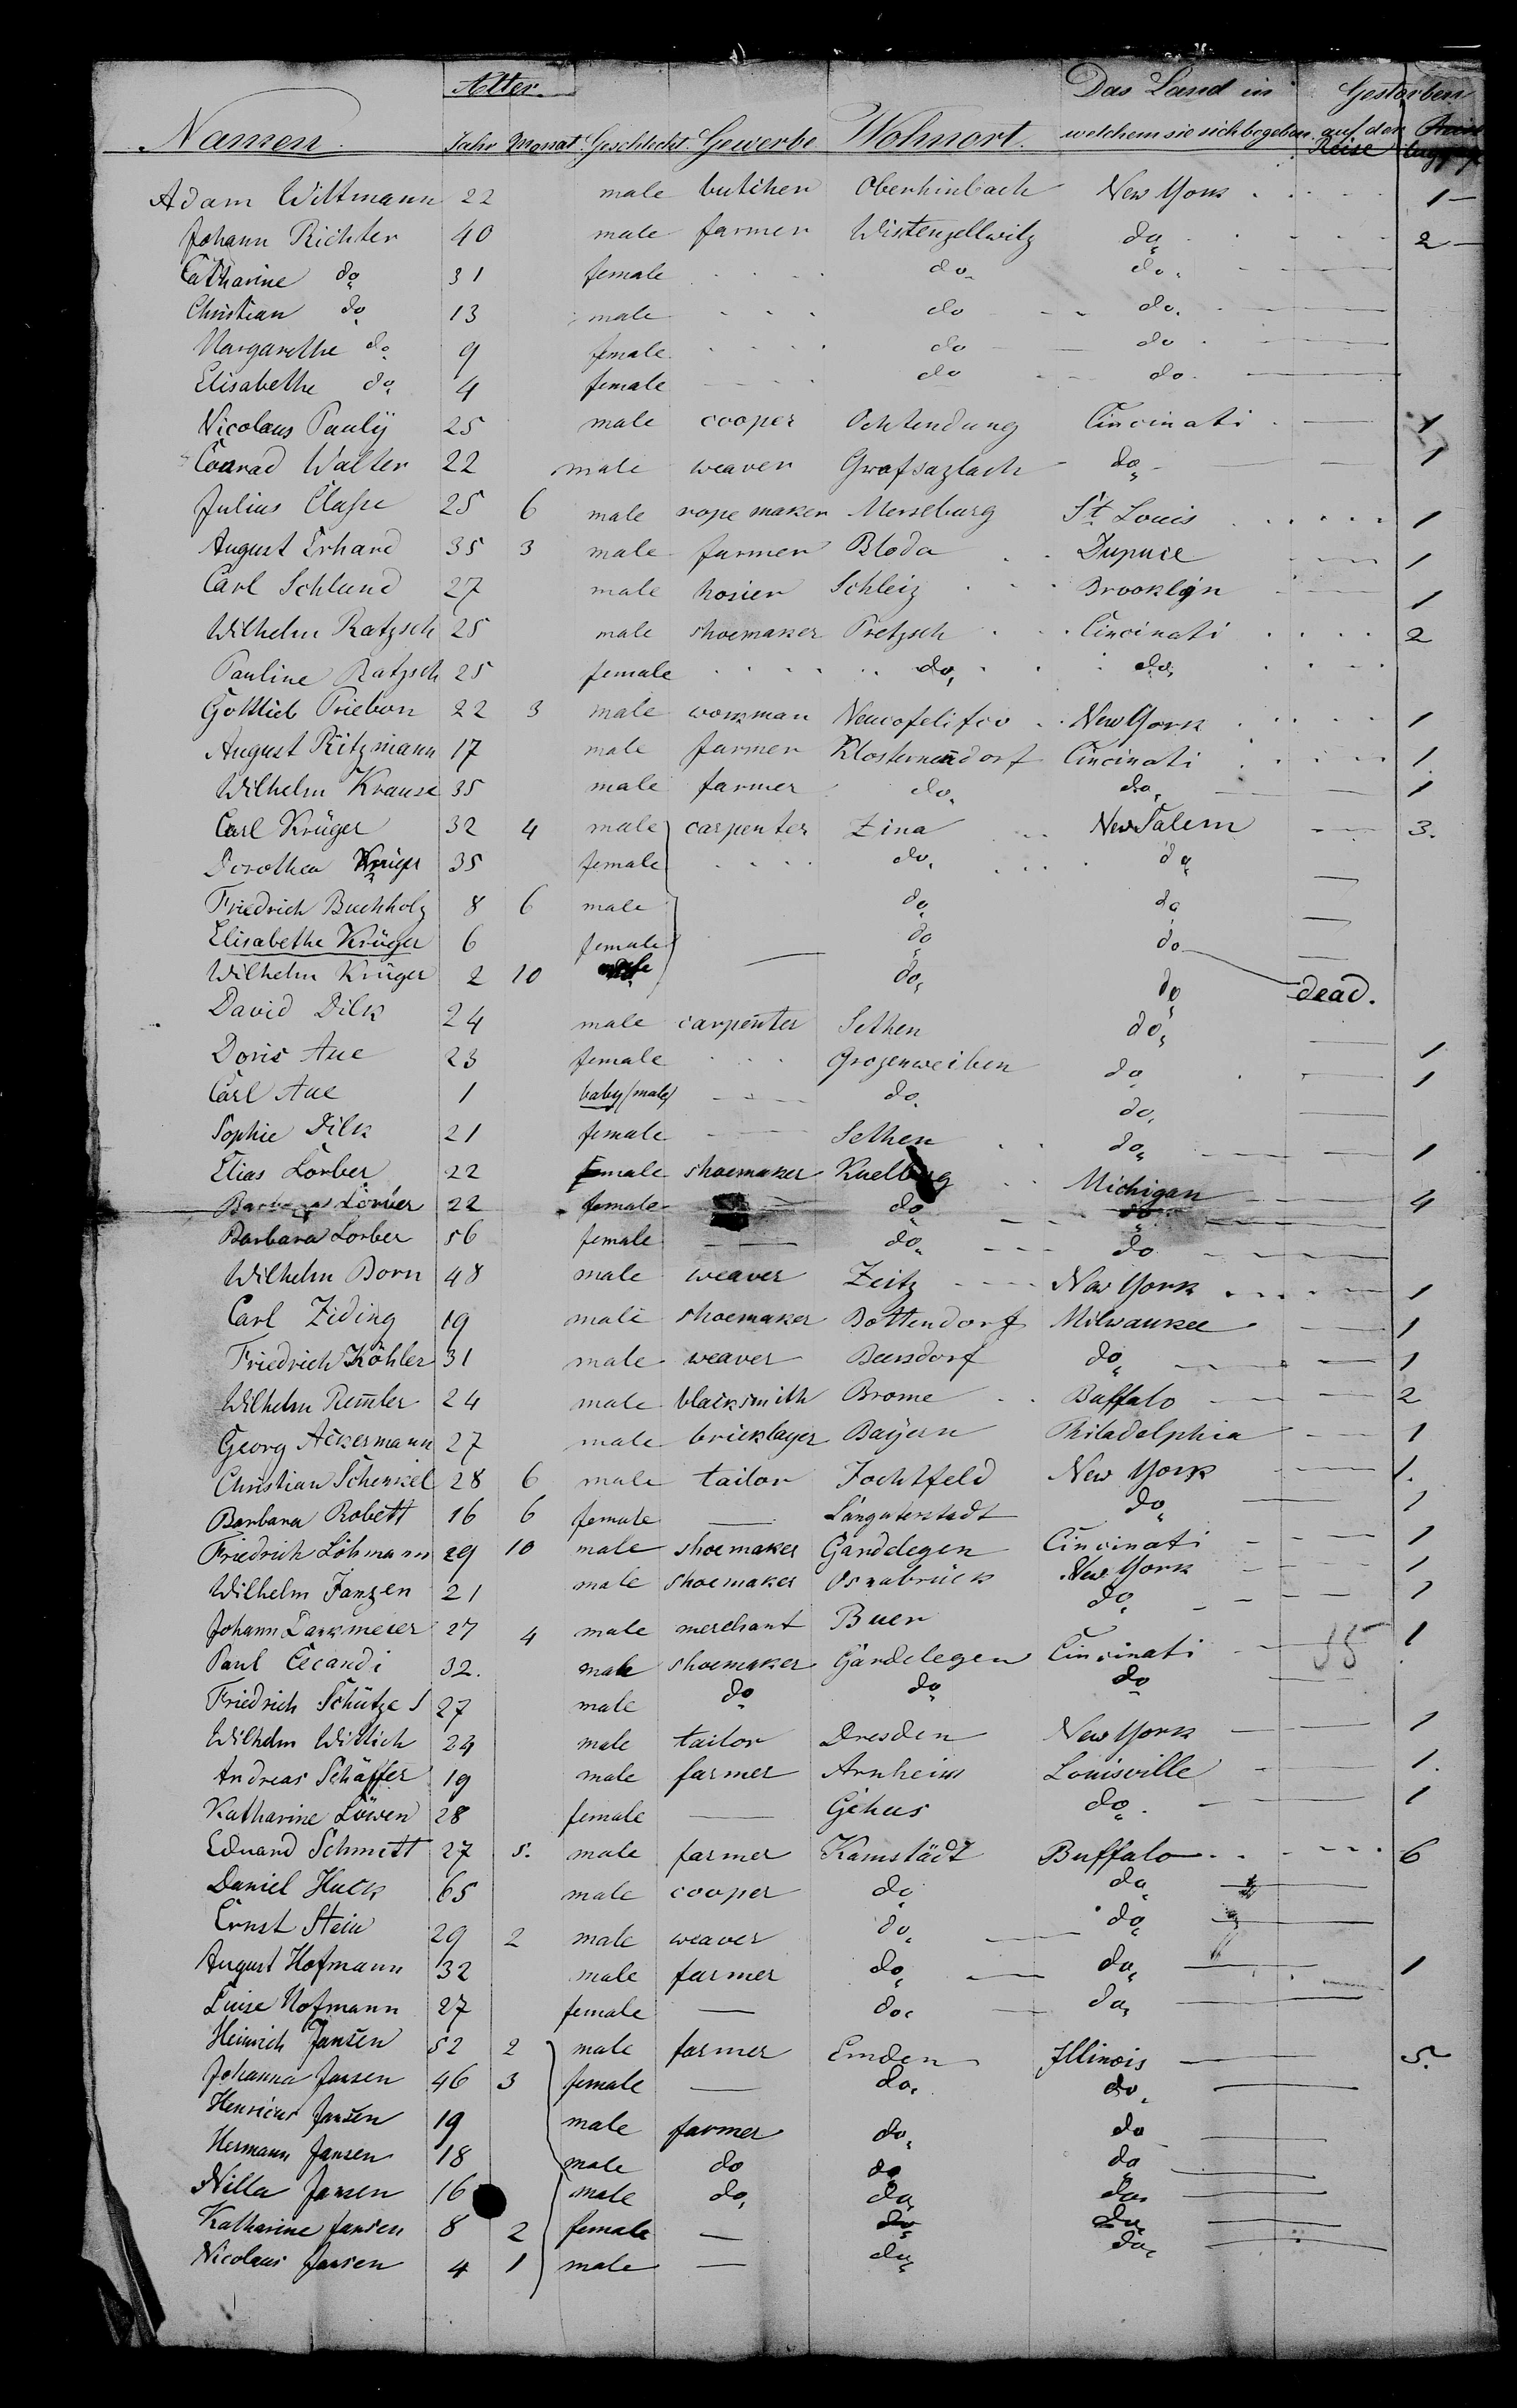 Alter. Das Land in Gestorben
Namen. Jahr Monat Geschlecht. Gewerbe Wohnort. welchem sie sich begeben auf der Reise
Adam Wittmann 22 male butcher Oberhinbach New York 1
Johann Richter 40 male farmer Wistenzellwitz do 2
Catharine do 31 female do do
Christian do 13 male do do.
Margarethe do 9 female do do
Elisabethe do 4 female do do
Nicolaus Paulÿ 25 male cooper Ochtendung Cincinati 1
Conrad Walter 22 male weaver Grafsazlach do 1
Julius Classe 25 6 male rope maker Merseburg St Louis 1
August Erhard 35 3 male farmer Bloda Dupuce 1
Carl Schlund 27 male hosier Schleiz Brooklÿn 1
Wilhelm Ratzsch 25 male shoemaker Pretzsch Cincinati 2
Pauline Ratzsch 25 female do, do,
Gottlieb Priebon 22 3 male workman New York 1
August Ritzmann 17 male farmer Klostermendorf Cincinati 1
Wilhelm Krause 35 male farmer do. do, 1
Carl Krüger 32 4 male carpenter Zina New Salem 3.
Dorothea Krüger 35 female do. do
Friedrich Buchholz 8 6 male do do
Elisabethe Krüger 6 female do do dead.
Wilhelm Krüger 2 10 male do, do
David Dilk 24 male carpenter Sethen do, 1
Doris Aue 23 female Grozenweiben do 1
Carl Aue 1 baby/male/ do. do.
Sophie Dilk 21 female Sethen do, 1
Elias Lorber 22 male shoemaker Kuelberg Michigan 4
Barbara Lorber 22 female do do
Barbara Lorber 56 female do, do
Wilhelm Born 48 male weaver Zeitz New York 1
Carl Ziding 19 male shoemaker Bottendorf Milwaukee 1
Friedrich Köhler 31 male weaver Beersdorf do 1
Wilhelm Rem̄ler 24 male blacksmith Brome Buffalo 2
Georg Ackermann 27 male bricklayer Baÿern Philadelphia 1
Christian Schenkel 28 6 male tailor Jochtfeld New York 1.
Barbara Robett 16 6 female Langaterstadt do 1
Friedrich Löhmann 29 10 male shoemaker Gardelegen Cincinati 1
Wilhelm Janzen 21 male shoemaker Osnabrück New York 1
Johann Darkmeier 27 4 male merchant Buer do, 1
Paul Cicandi 32. male shoemaker Gardelegen Cincinati 1
Friedrich Schütze 27 male do do do
Wilhelm Wittich 24 male tailor Dresden New York 1
Andreas Schäffer 19 male farmer Arnheim Louisville 1.
Katharine Löwen 28 female Gehus do. 1
Eduard Schmitt 27 5. male farmer Kamstädt Buffalo 6
Daniel Huck 65 male cooper do do
Ernst Stein 29 2 male weaver do, do,
August Hofmann 32 male farmer do, do, 1
Luise Hofmann 27 female do, do,
Heinrich Jansen 52 2 male farmer Emden Illinois 5.
Johanna Jansen 46 3 female do, do,
Henricus Jansen 19 male farmer do, do
Hermann Jansen 18 male do do do
Nilla Jansen 16 male do, do, do,
Katharine Jansen 8 2 female do do,
Nicolaus Jansen 4 1 male do, do,